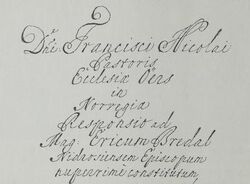 Dni. Francisci Nicolai
Pastoris
Eclesiæ Oers
in
Norregia
Responsio ad
Mag. Ericum Bredal
Nidrosiensem Episcopum
nuperrime constitutum,